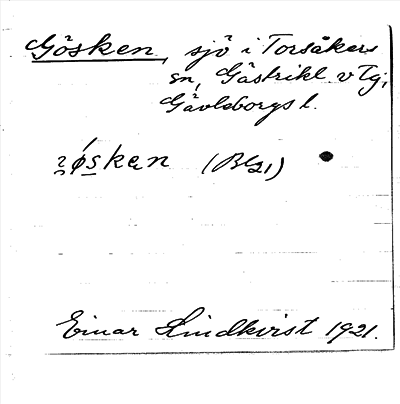 Gösken, sjö i Torsåkers
sn, Gästrikl. v Tg,
Gävleborgs l.
(Bl21)
Einar Lindkvist 1921.